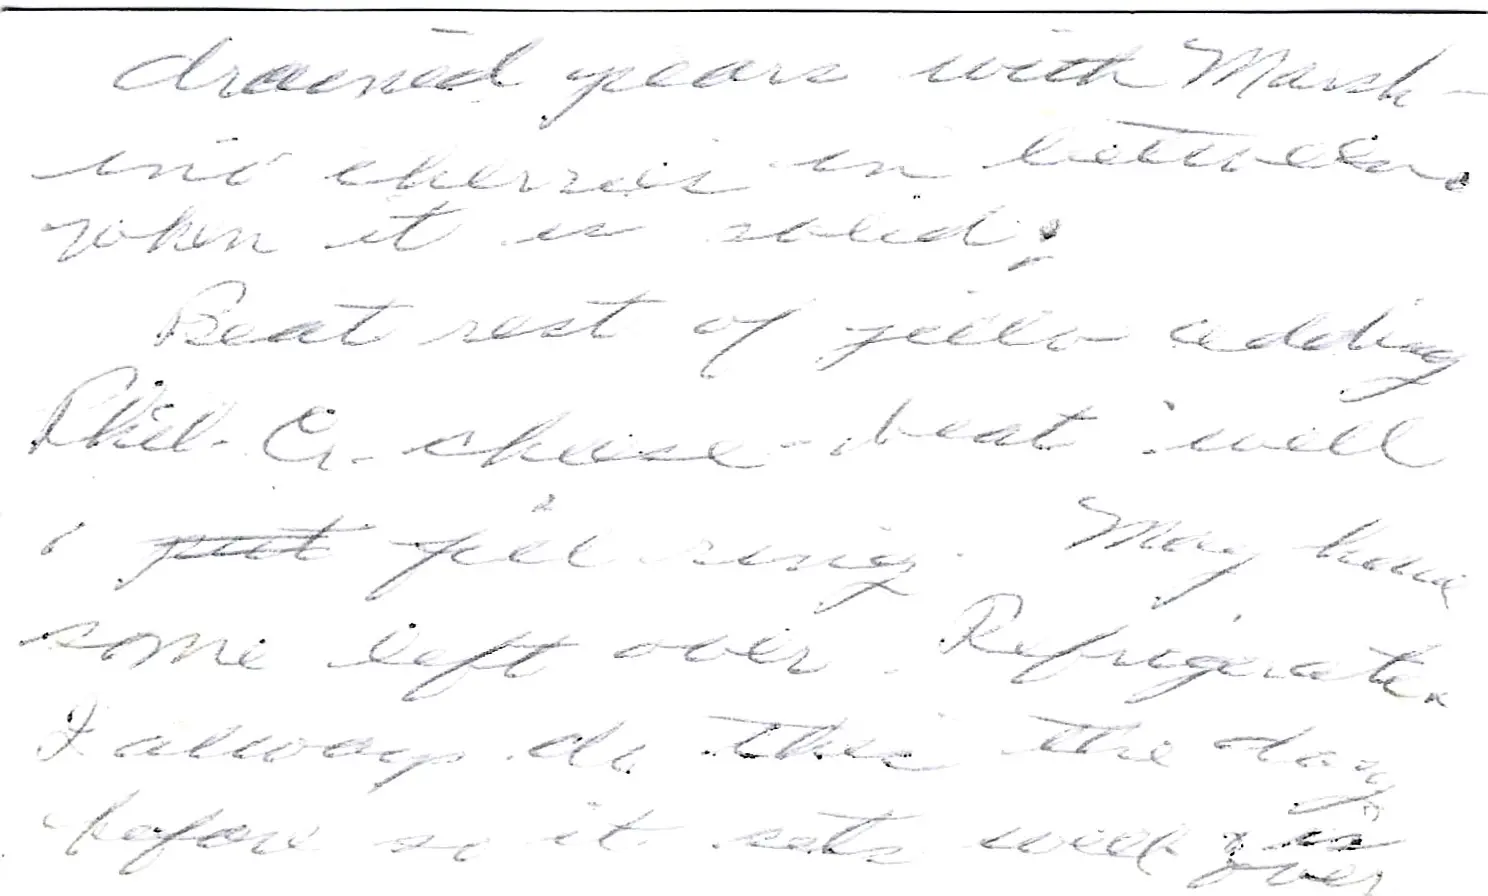 drained pears with Marsh-
ino cherries in between.
when it is solid;
Beat rest of jello adding
Phil. Cr. cheese - beat well
put fill ring. May have
some left over. Refrigerate.
I always do this the day
before so it sets well & is
over